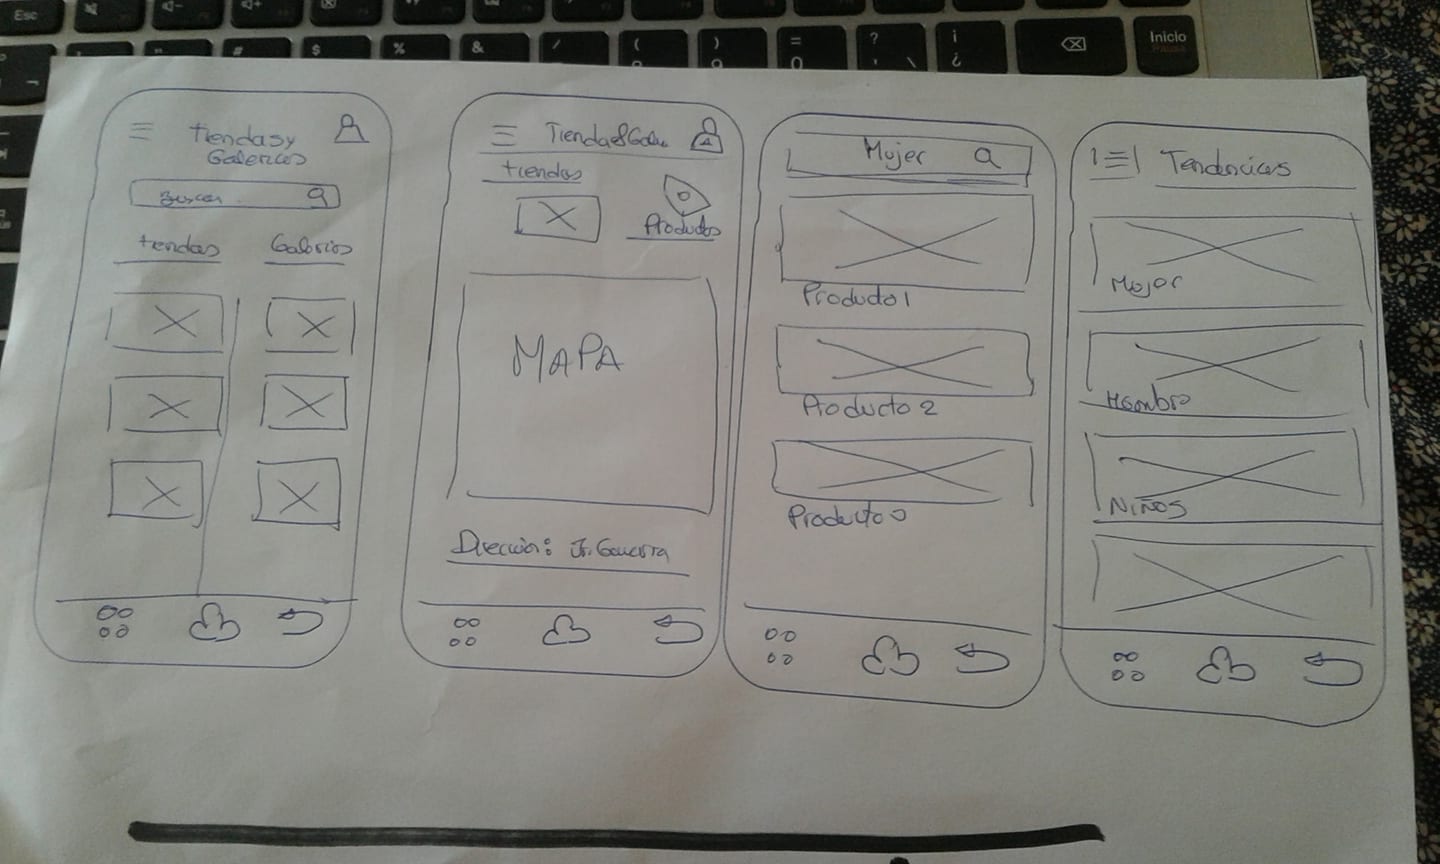 Esc
#
$
%
&
/
(
)
=
0
?
'
\
¡
¿
Inicio
Pausa
tiendas y
Galerias
Buscar
tiendas
Galerias
Tiendas&Gale..
tiendas
Productos
MAPA
Dirección: Jr. Gamarra
Mujer
Producto 1
Producto 2
Producto 3
Tendencias
Mujer
Hombre
NIÑOS